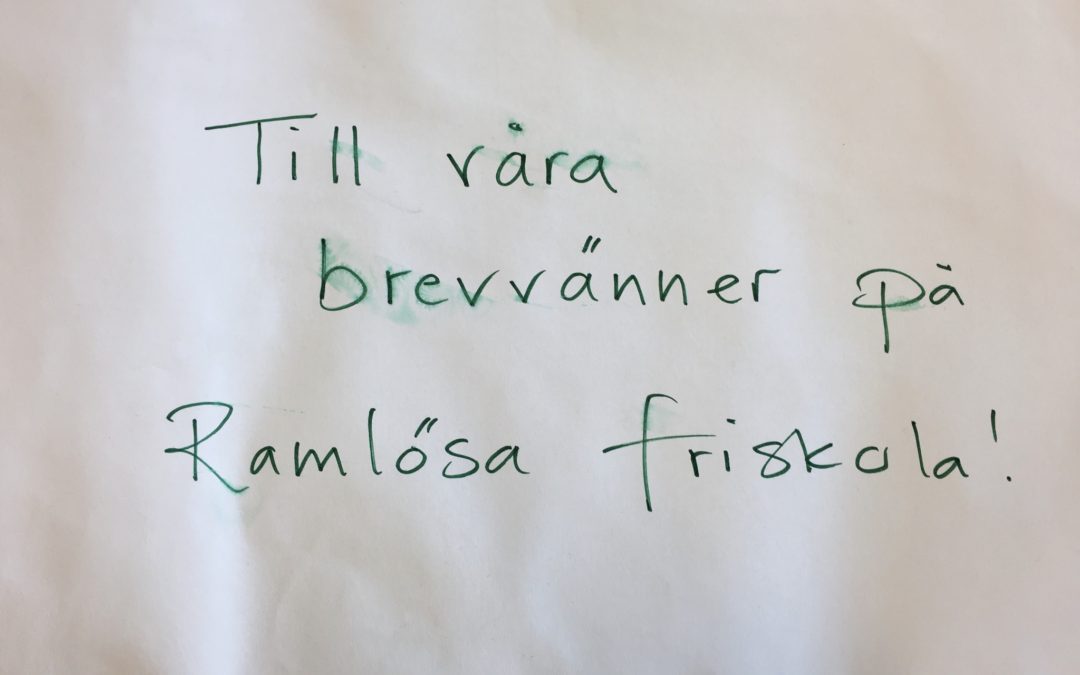 Till våra
brevvänner på
Ramlösa friskola!